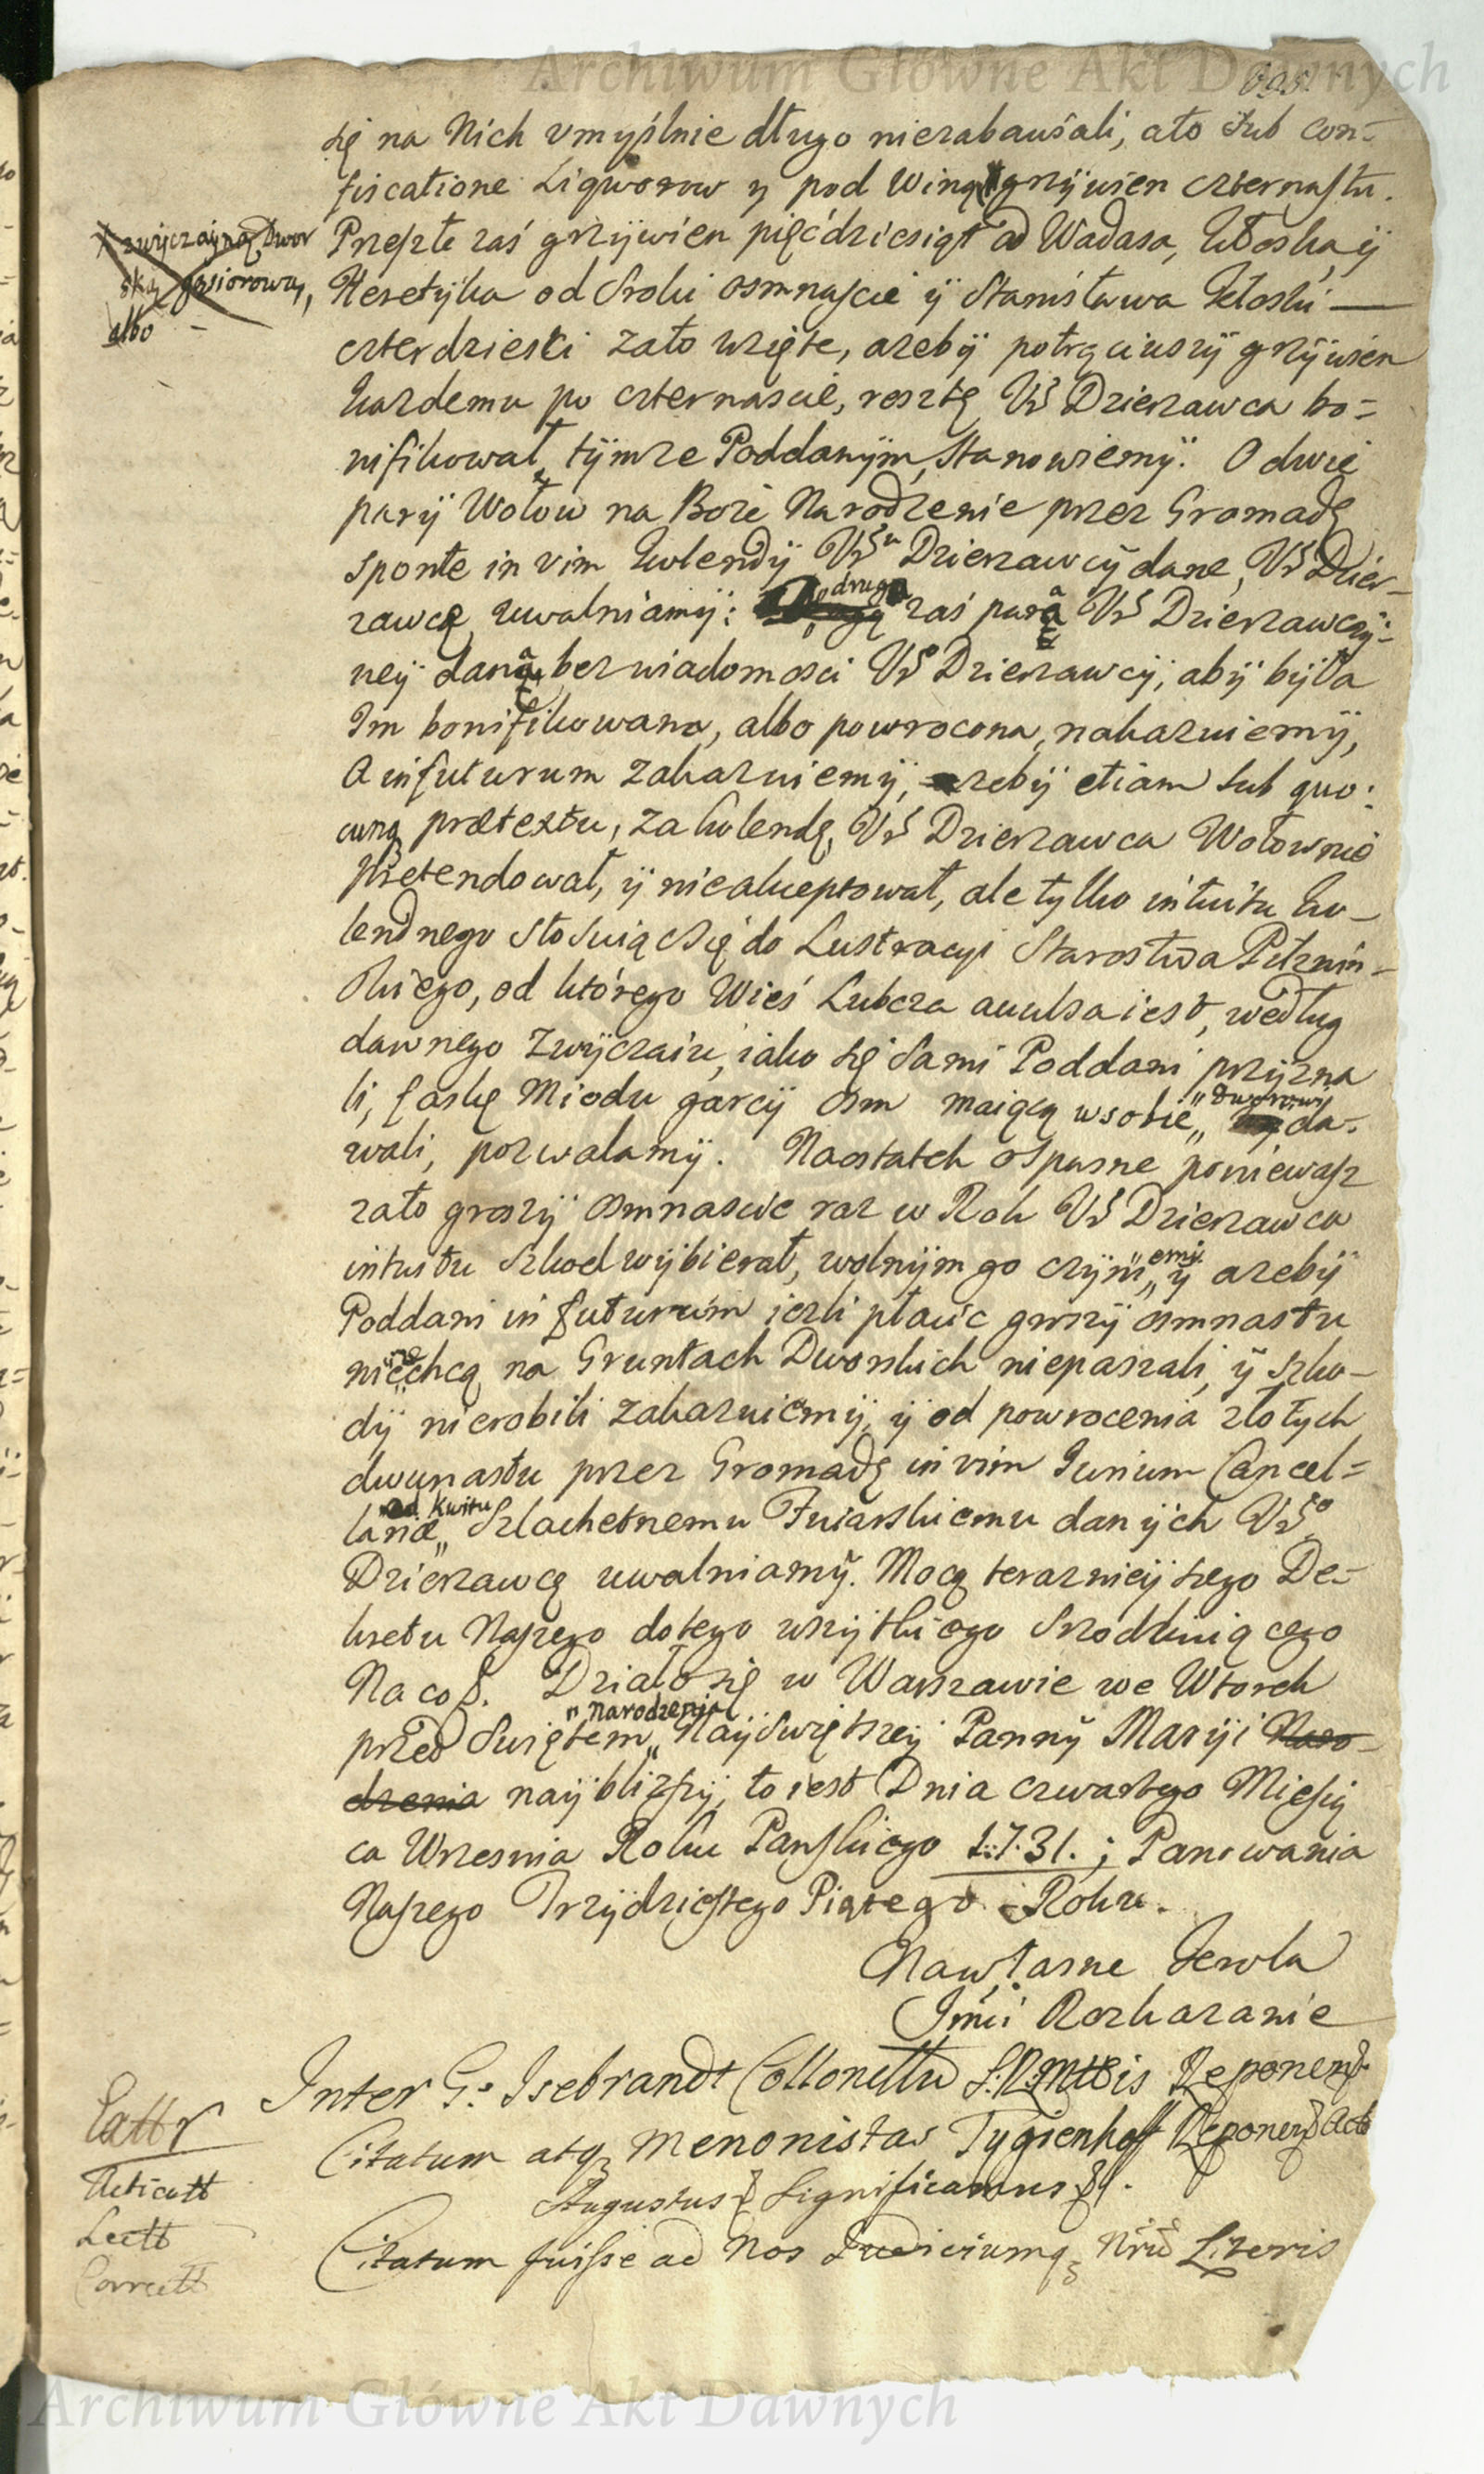 Archiwum Główne Akt Dawnych
695.
się na Nich vmyślnie długo niezabawiali, a to sub con-
fiscatione Liqworow y pod Winą grzywien czternastu.
X zwyczayną Dwor
ską gąsiorową,
albo -
Przeszłe zaś grzywien pięćdziesiąt od Wadasa, Kłoska, ÿ
Heretyka od Sroki osmnascie ÿ Stanisława Kłoski —
czterdzieski zato wzięte, azebÿ potrąciwszÿ grzÿwien
kazdemu po czternascie, resztę Vr Dzierzawca bo=
nifikował tÿmze Poddanÿm, stanowiemÿ. O dwie
parÿ Wołow na Boże Narodzenie przez Gromadę
sponte in vim kolendÿ Vrmu Dzierzawcÿ dane, Vr Dzier-
zawcę uwalniamÿ: „druga zaś parą Vr Dzierzawczÿ-
neÿ daną bez wiadomosci Vrgo Dzierzawcÿ, abÿ bÿła
Im bonifikowana, albo powrocona, nakazuiemÿ,
A infuturum zakazuiemÿ, azebÿ etiam sub quo-
cunq prætextu, za kolendę, Vr Dzierzawca Wołow nie
pretendował, ÿ nieakceptował, ale tylko intuitu ko-
lendnego stosuiąc się do Lustracyi Starostwa Pilznin-
skiego, od którego Wieś Lubcza avulsa iest, według
dawnego zwÿczaiu, iako się Sami Poddani przÿzna
li, faskę Miodu garcÿ osm maiącą w sobie „Dworowi da-
wali, pozwalamÿ. Naostatek ospasne poniewasz
zato groszÿ osmnascie raz w Rok Vr Dzierzawca
intuitu Szkod wÿbierał, wolnÿm go czÿni„emÿ ÿ azebÿ
Poddani in futurum iezli płacic groszÿ osmnastu
niezechcą na Gruntach Dworskich niepaszali, ÿ szko-
dÿ nierobili zakazuiemÿ, ÿ od powrocenia złotych
dwunastu przez Gromadę in vim Iurium Cancel=
lariæ „od Kwitu Szlachetnemu Fuiarskiemu danÿch Vrgo
Dzierzawcę uwalniamÿ. Mocą terazniejszego De-
kretu Naszego do tego wszÿtkiego Srzodkuiącego
Na co §. Działo się w Warszawie we Wtorek
przed Swiętem „Narodzenia Naÿswiętszeÿ Pannÿ Marÿi Naro-
dzenia naÿbliszÿ, to iest Dnia czwartego Miesią
ca Wrzesnia Roku Panskiego 1731.; Panowania
Naszego Trzÿdziestego Piątego Roku.
Na własne Krola
Jmci Rozkazanie
Inter G. Isebrandt Collonellū S.R.Mttis Reponend
Cattr
Citatum atq Menonistas Tygienhoff Reponend Act
Acticatt
Augustus § Significamus §.
Lectt
Citatum fuisse ad Nos Iudiciumq Nrū Literis
Correctt
Archiwum Główne Akt Dawnych